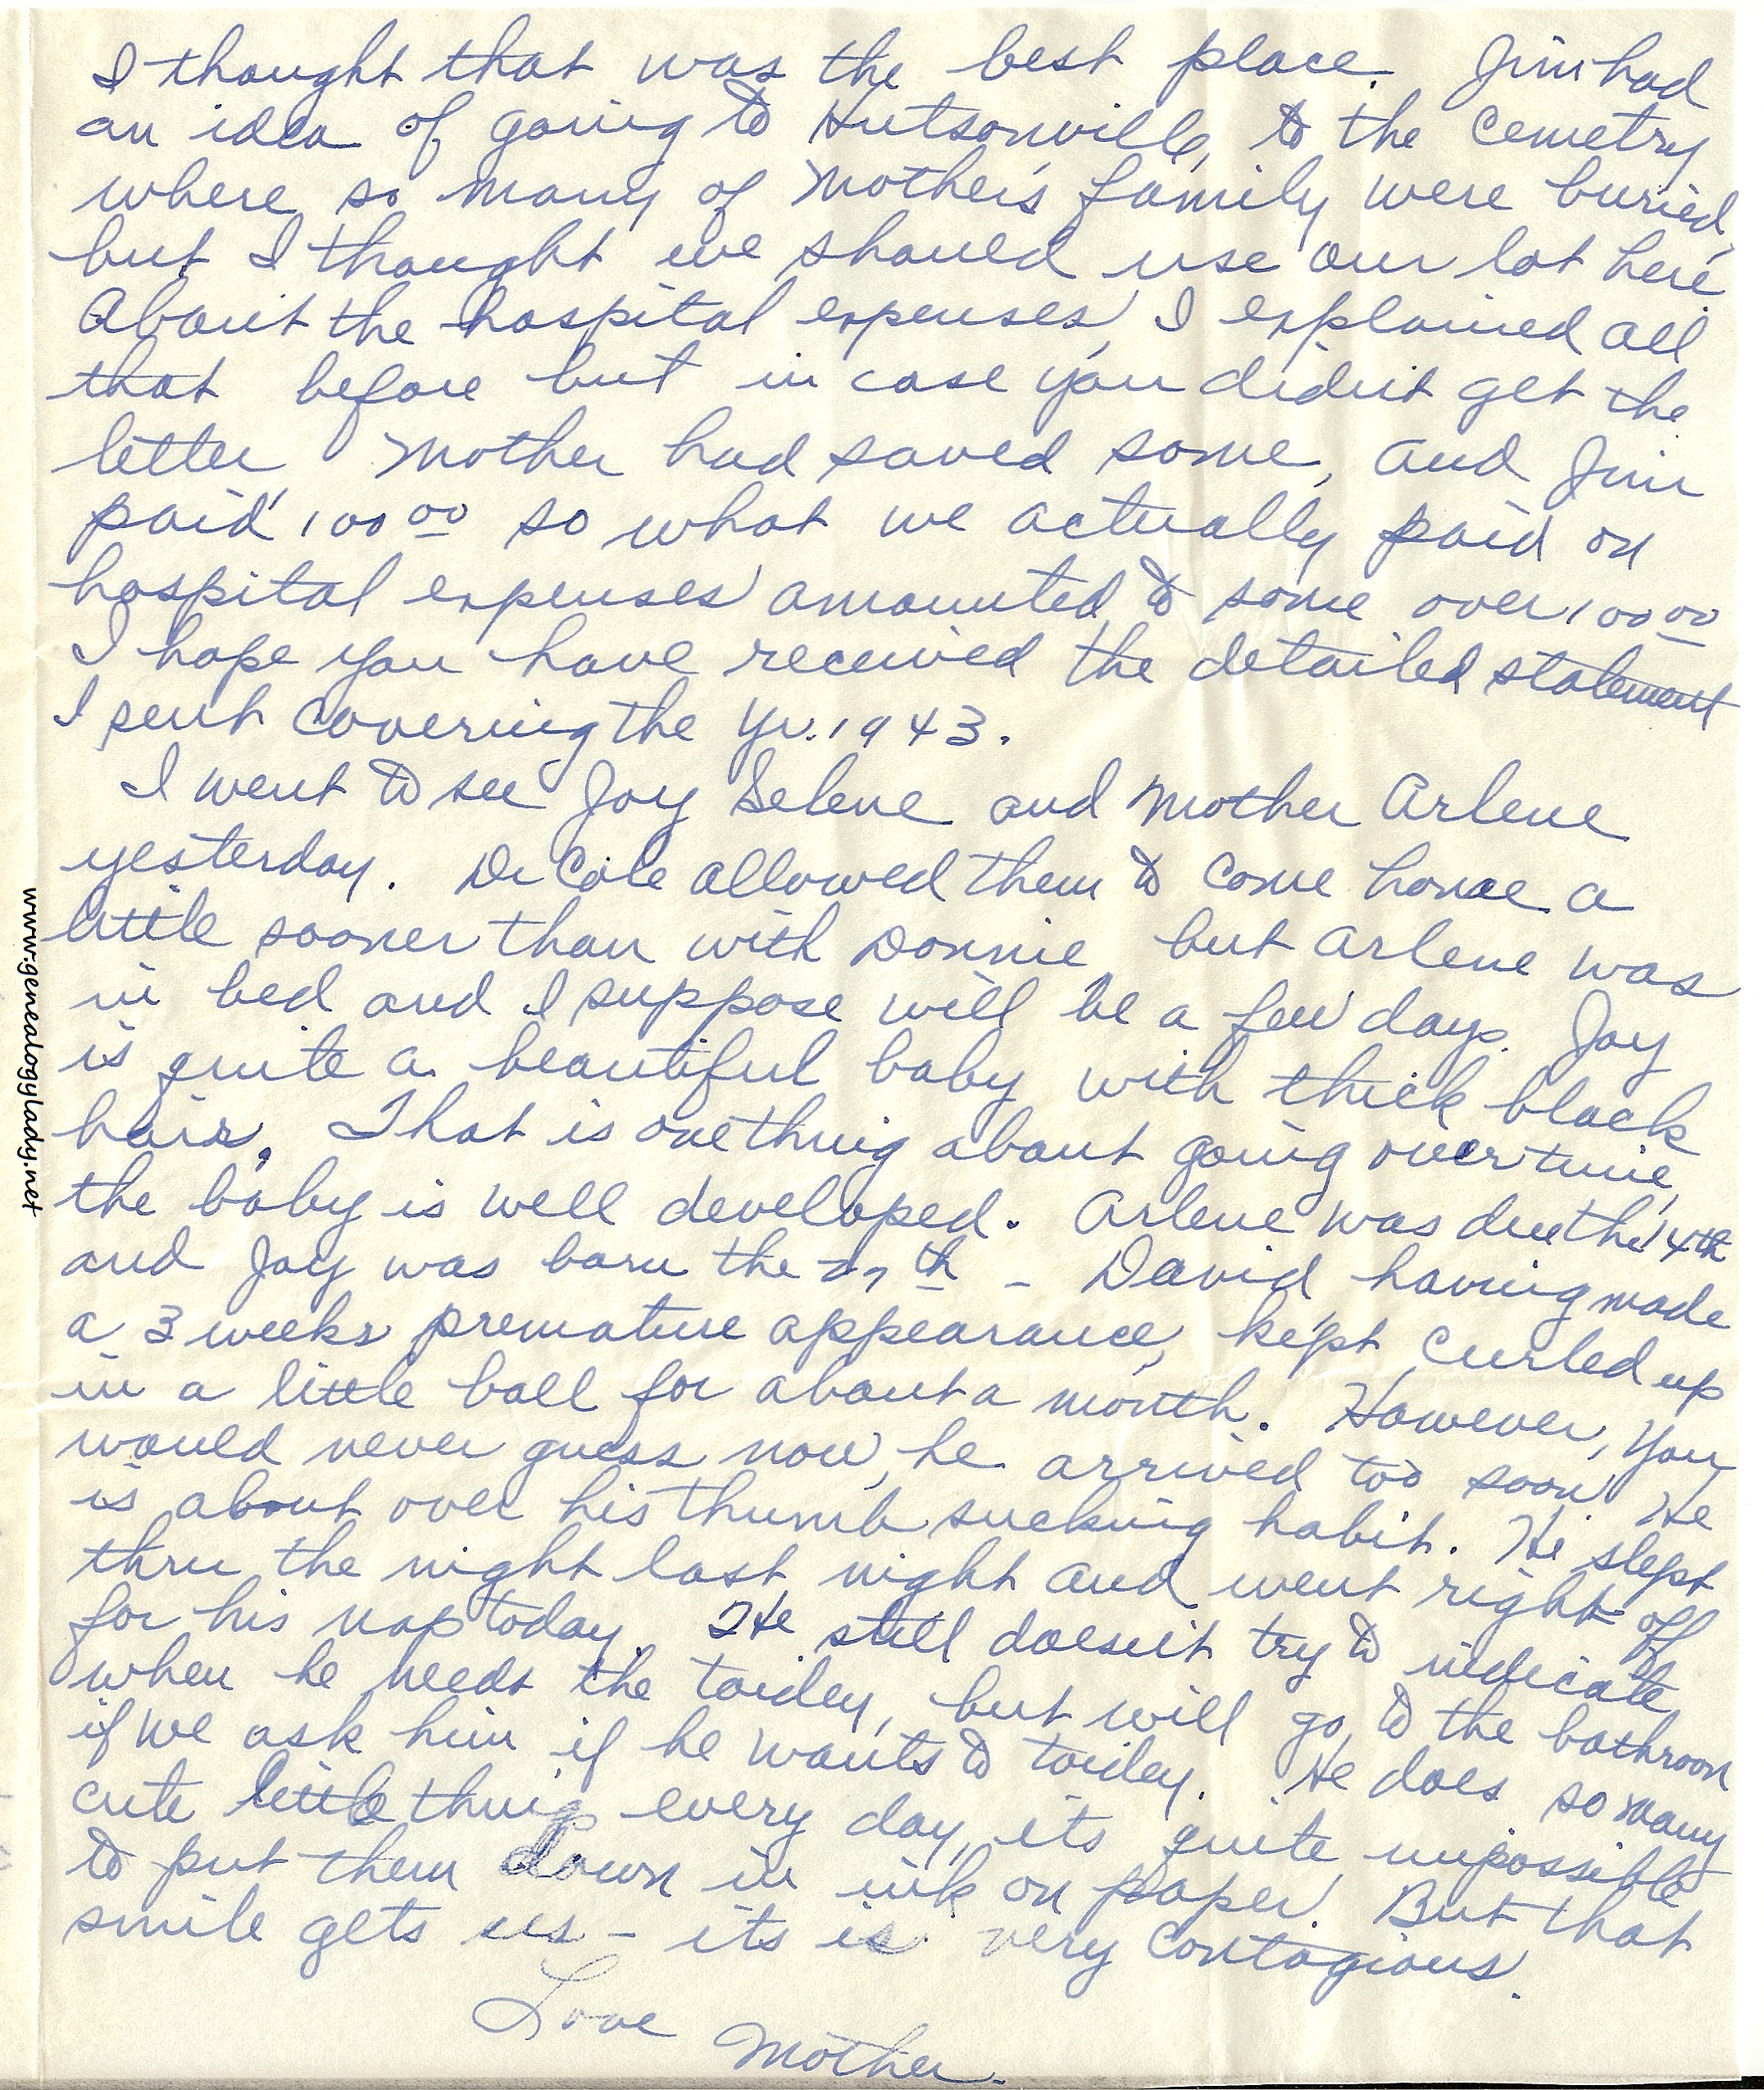 I thought that was the best place. Jim had
an idea of going to Hutsonville, to the Cemetry
where so many of Mother's family were buried,
but I thought we should use our lot here.
About the hospital expenses, I explained all
that before but in case you didn't get the
letter, Mother had saved some, and Jim
paid 100 00 so what we actually paid on
hospital expenses amounted to some over 100 00
I hope you have received the detailed statement
I sent covering the Yr. 1943.
I went to see Joy Selene and Mother Arlene
yesterday. Dr Cole allowed them to come home a
little sooner than with Donnie but Arlene was
in bed and I suppose will be a few days. Joy
is quite a beautiful baby with thick black
hair. That is one thing about going overtime,
the baby is well developed. Arlene was due the 14th
and Joy was born the 27th - David having made
a 3 weeks premature appearance, kept curled up
in a little ball for about a month. However, you
would never guess now, he arrived too soon. He
is about over his thumb sucking habit. He slept
thru the night last night and went right off
for his nap today. He still doesn't try to indicate
when he needs the toidey, but will go to the bathroom
if we ask him if he wants to toidey. He does so many
cute little things every day, its quite impossible
to put them down in ink on paper. But that
smile gets us - its is very contagious.
Love
Mother.
www.genealogylady.net